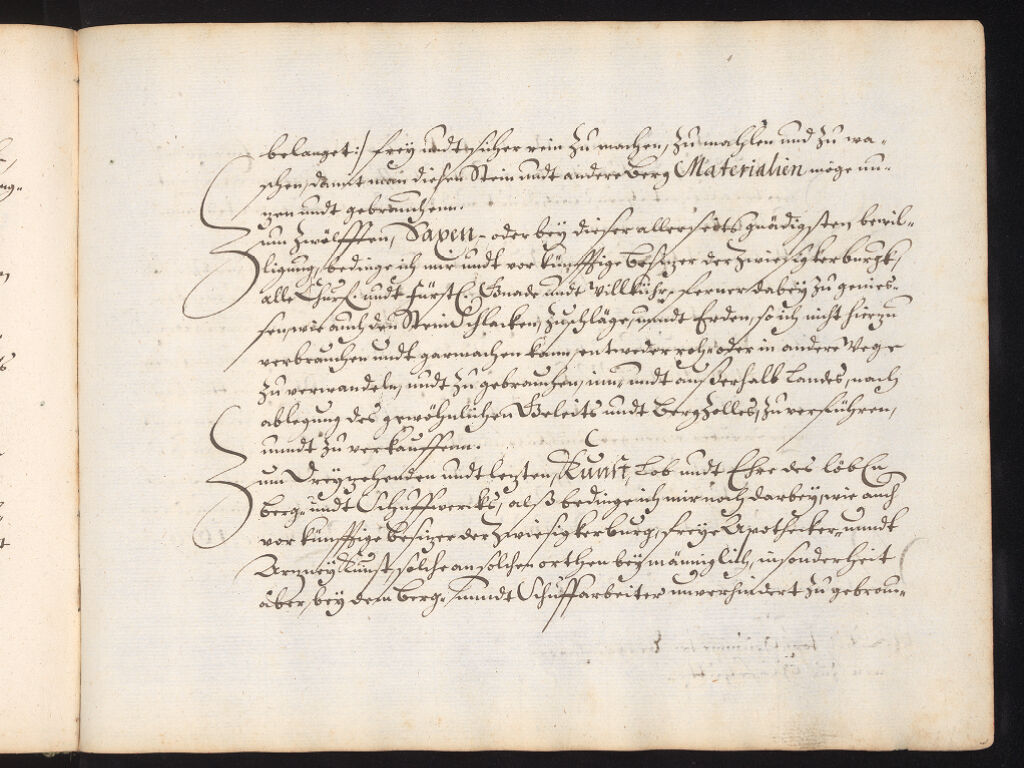 belanget:/ frey undt sicher rein zu machen, zu mahlen und zu wa-
schen, damit man diesen Stein undt andere Berg Materialien möge nu-
zen undt gebrauchenn.
Zum Zwölfften, Saxen, oder bey dieser allerseits gnädigsten bewil-
ligung, bedinge ich mir undt vor künfftige Besizer der Zwiesigkerburgk,
alle Churf: undt Fürstl: Gnade undt Willkühr, ferner dabey zu genies-
sen, wie auch den Stein Schlacken, Zuschläge, unndt Erden, so ich nicht hierzu
verbrauchen undt garmachen kann, entweder roh, oder in andere Wege
zu verwandeln, undt zu gebrauchen, inn: undt außerhalb Landes, nach
ablegung des gewöhnlichen Geleits undt Bergzolles, zu verführen,
unndt zu verkauffenn.
Zum Dreyzehenden undt lezten, Kunst, Lob undt Ehre des löblen
berg: undt Schuffwercks, alß bedinge ich mir noch darbey, wie auch
vor künfftige besizer der Zwiesigkerburg, freye Apothecker- unndt
Arzney Kunst, solche an solchen orthen bey männiglich, insonderheit
aber, bey dem Berg: unndt Schuffarbeiter unverhindert zu gebrau-